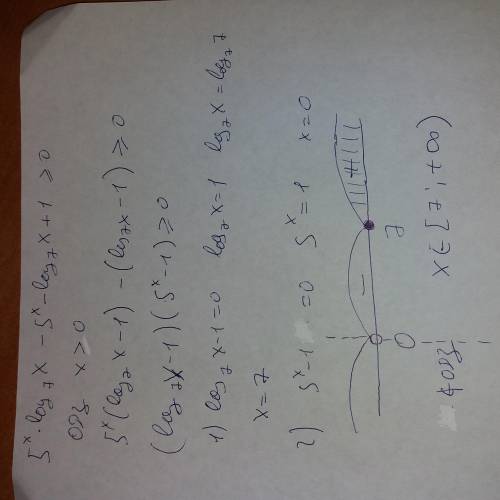 5ˣ·log₇x − 5ˣ − log₇x + 1 ≥ 0
ОДЗ x > 0
5ˣ(log₇x − 1) − (log₇x − 1) ≥ 0
(log₇x − 1)(5ˣ − 1) ≥ 0
1) log₇x − 1 = 0 log₇x = 1 log₇x = log₇7
x = 7
2) 5ˣ − 1 = 0 5ˣ = 1 x = 0
− +
0 7
ОДЗ
x ∋ [7; +∞)